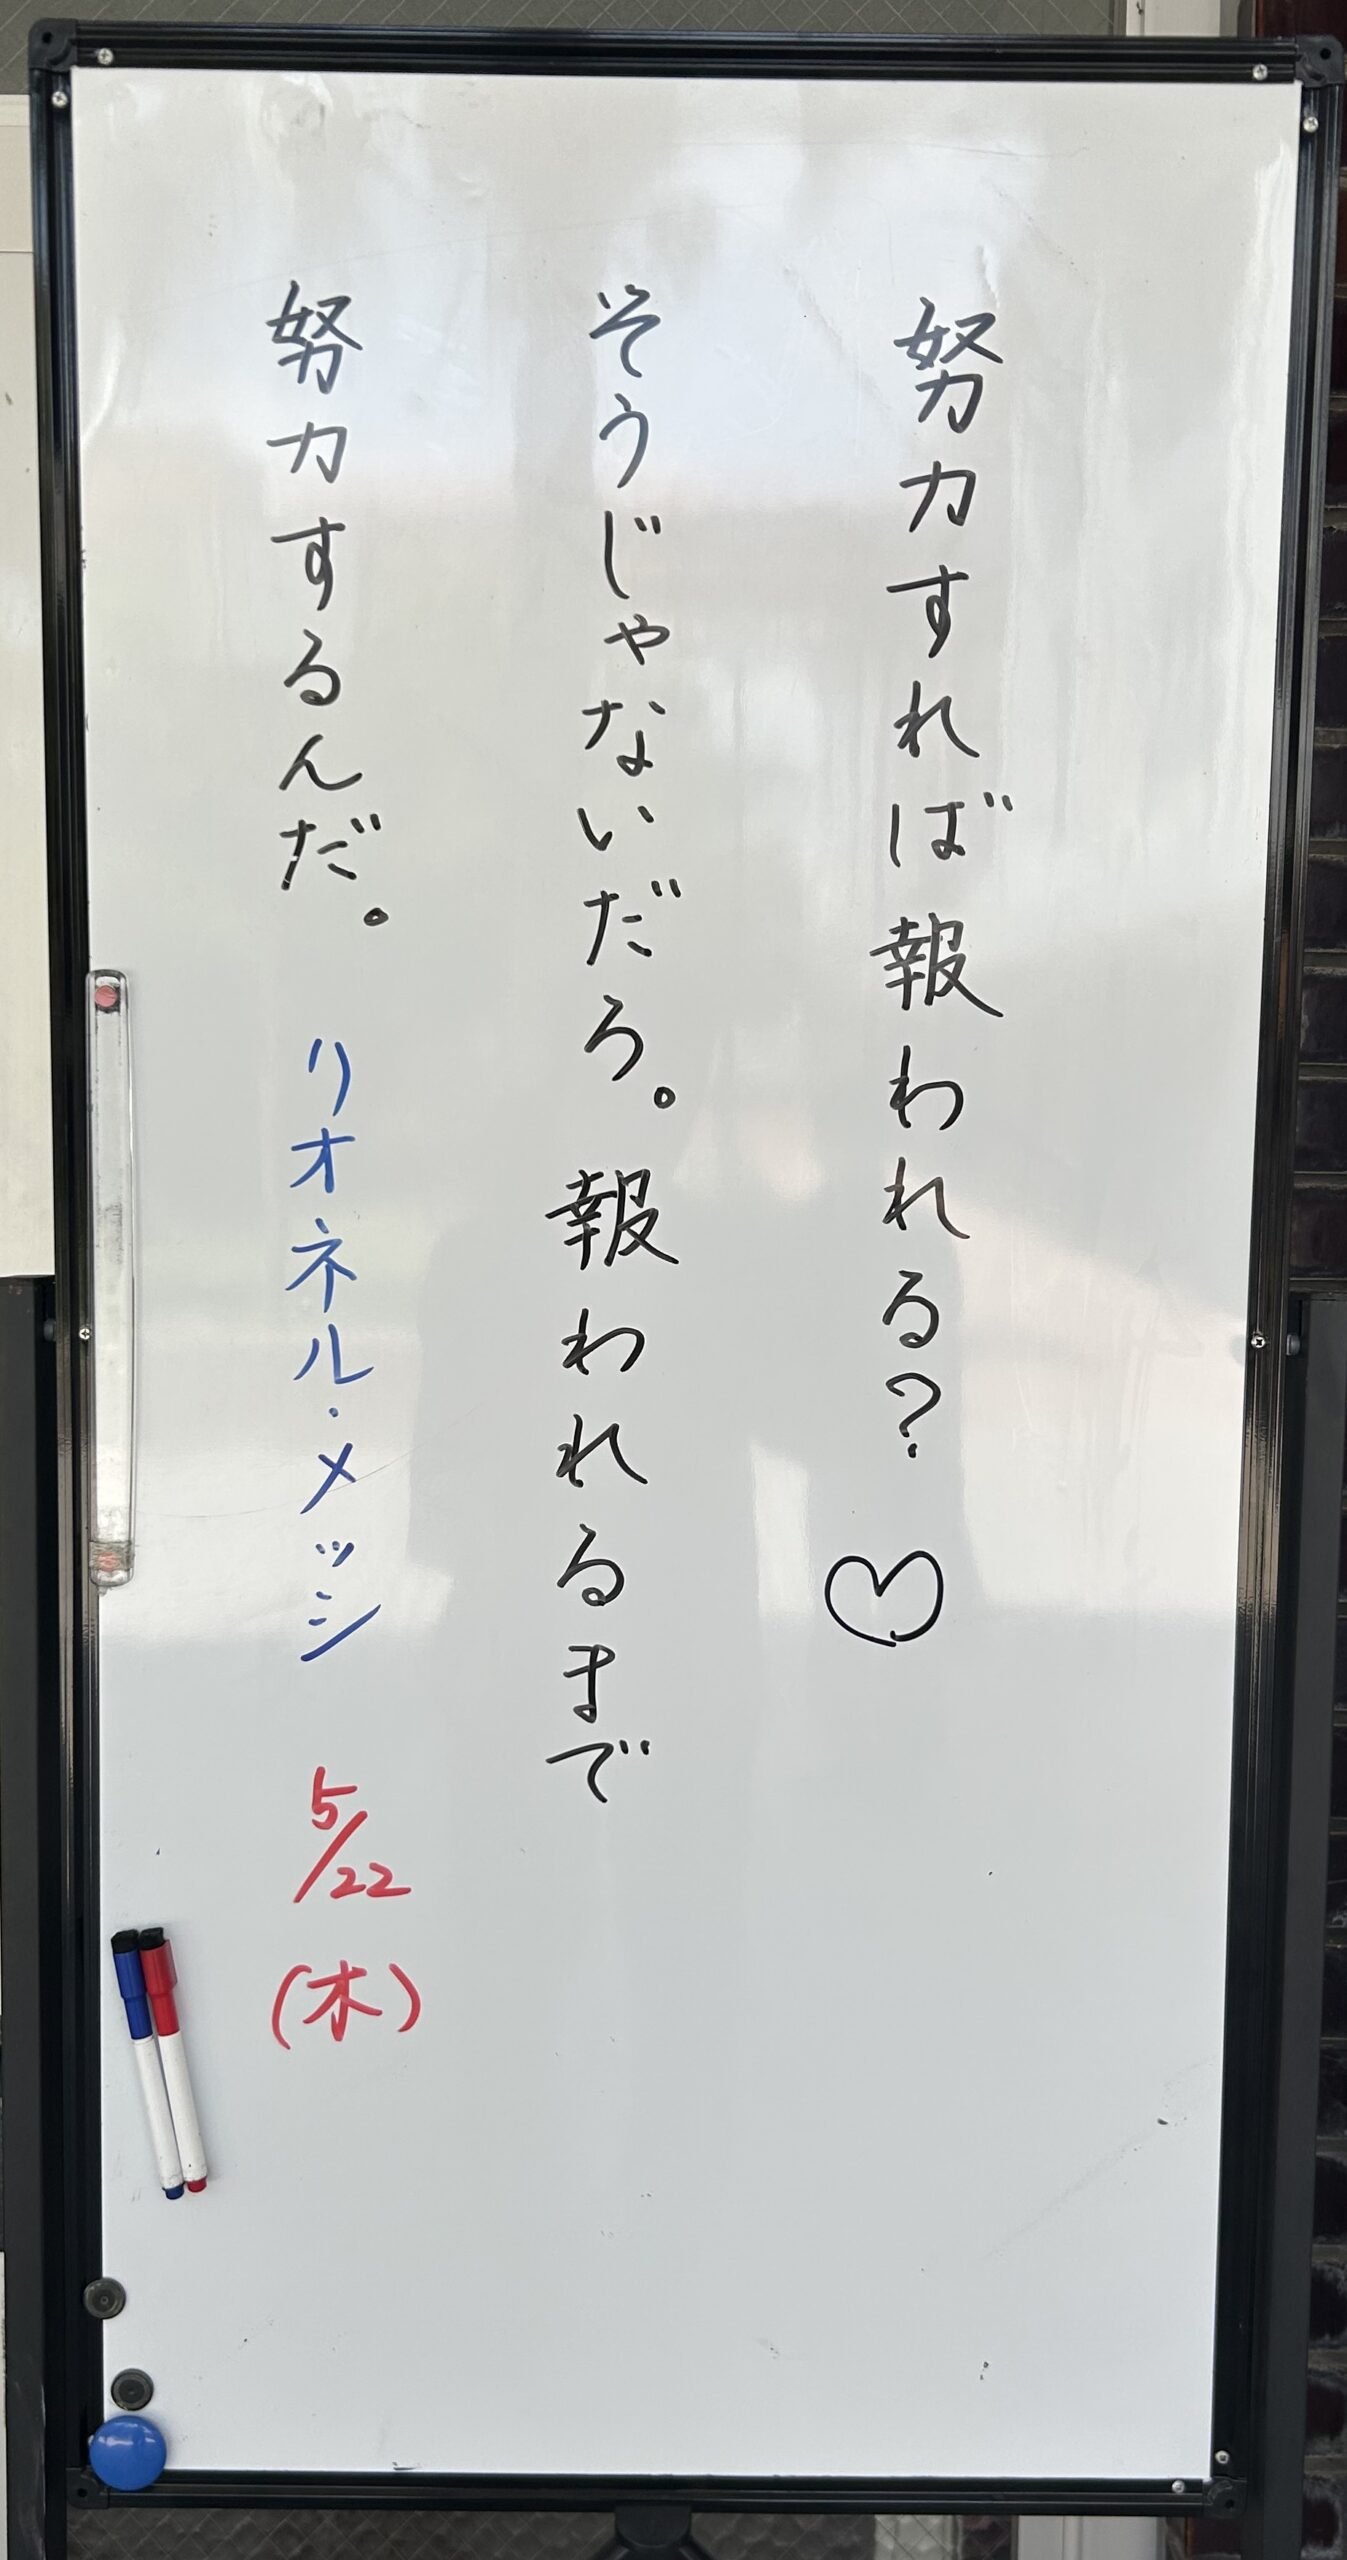 努力すれば報われる?♡
そうじゃないだろ。報われるまで
努力するんだ。 リオネル・メッシ 5/22 (木)